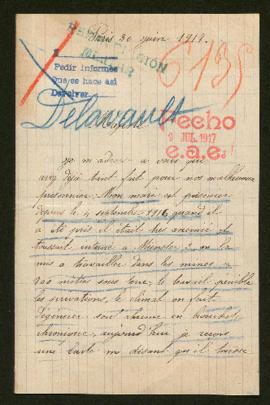 Paris 30 juin 1917.
6135
Pedir Informes
Que se hace así
Devolver
Delavault
Hecho
2 JUL. 1917
e.a.e.
Je m'adresse à vous qui
avez déjà tant fait pour nos malheureux
prisonniers. Mon mari est prisonnier
depuis le 4 septembre 1916 quand il
a été pris il était très
toussait, interné à Munster 2 on l'a
mis à travailler dans les mines à
mètres sous terre, le travail pénible
les privations, le climat on fait
dégénérer son rhume en bronchite
chronique, aujourd'hui je reçois
une carte me disant qu'il tousse